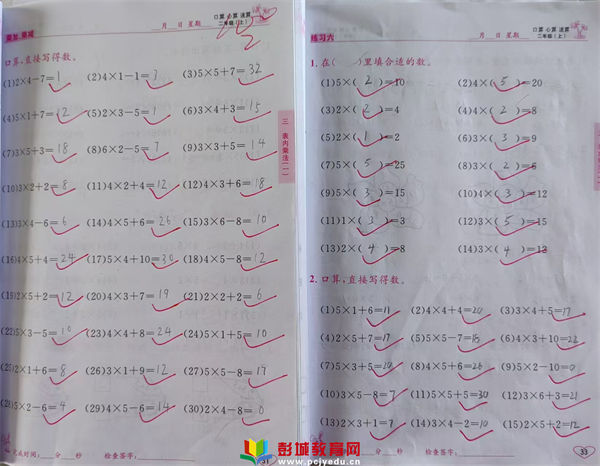 乘加、乘减 月 日 星期 口算 心算 速算 二年级(上)
口算,直接写得数。
(1)2×4-7=1 (2)4×1-1=3 (3)5×5+7=32
(4)5×1+7=12 (5)2×3-5=1 (6)3×4+3=15
(7)3×5+3=18 (8)6×2-5=7 (9)3×3+5=14
(10)3×2+2=8 (11)4×2+4=12 (12)4×3+6=18
(13)3×4-6=6 (14)4×5+6=26 (15)3×6-8=10
(16)4×5+4=24 (17)5×4+10=30 (18)4×5-8=12
(19)2×5+2=12 (20)4×3+7=19 (21)2×2+2=6
(22)5×3-5=10 (23)4×4+8=24 (24)5×1+5=10
(25)2×1+6=8 (26)3×1+9=12 (27)5×5-8=17
(28)5×2-6=4 (29)4×5-6=14 (30)2×4-8=0
完成时间: 分 秒 检查签字:
31
三 表内乘法(一)
练习六 月 日 星期 口算 心算 速算 二年级(上)
1. 在( )里填合适的数。
(1)5×(2)=10 (2)4×(5)=20
(3)2×(2)=4 (4)4×(2)=8
(5)2×(1)=2 (6)3×(3)=9
(7)5×(5)=25 (8)3×(2)=6
(9)5×(3)=15 (10)4×(3)=12
(11)1×(3)=3 (12)3×(5)=15
(13)2×(4)=8 (14)3×(4)=12
2. 口算,直接写得数。
(1)5×1+6=11 (2)4×4+4=20 (3)3×4+5=17
(4)2×5+7=17 (5)5×5-7=18 (6)4×3+10=22
(7)5×3+5=20 (8)4×5+6=26 (9)5×2-10=0
(10)3×5-8=7 (11)5×5+5=30 (12)3×6+3=21
(13)2×3+1=7 (14)3×4-2=10 (15)2×5+2=12
完成时间: 分 秒 检查签字:
33
彭城教育网
www.pcjyedu.cn